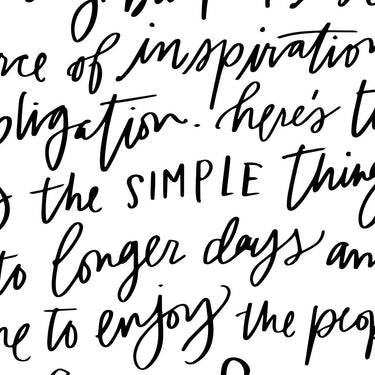 rce of inspiration
bligation. here's t
the SIMPLE thing
to longer days an
re to enjoy the peop